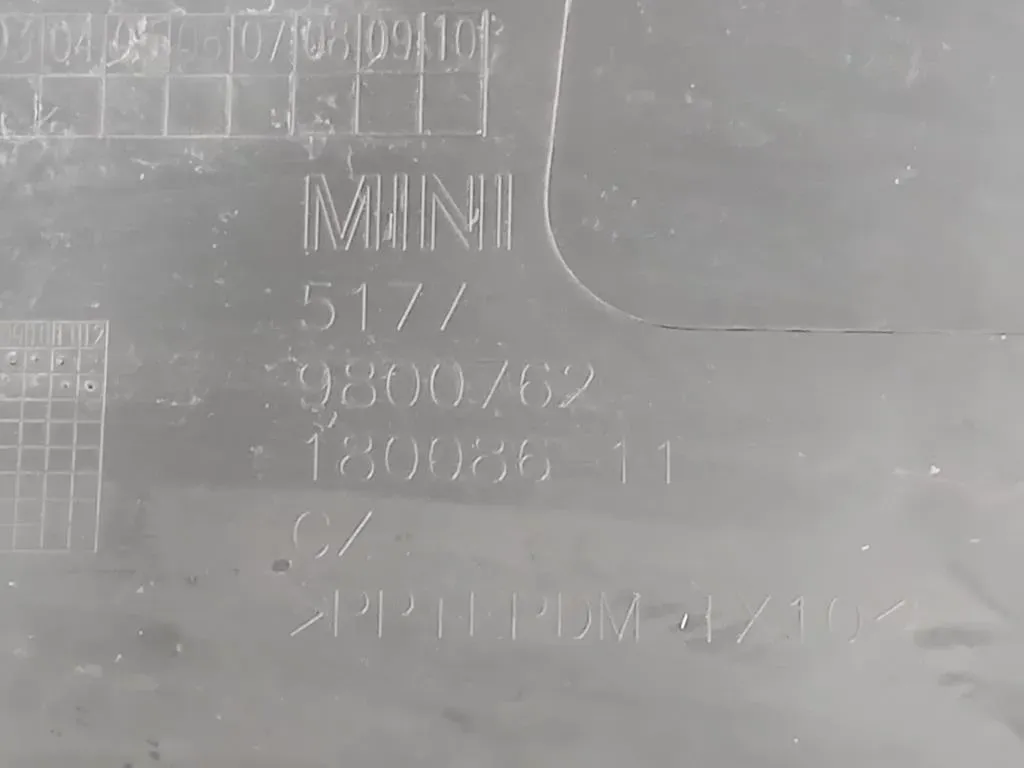 03 04 05 06 07 08 09 10
MINI
5177
9800762
180086 11
C/
>PP+EPDM-TX10<
11 12